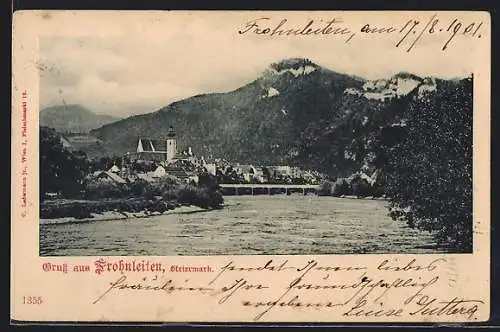 Frohnleiten, am 17./8. 1901.
C. Ledermann jr., Wien I, Fleischmarkt 12.
Gruß aus Frohnleiten, Steiermark.
sendet Ihnen liebes
Fräulein, Ihre Freundschaftlich
ergebene Luise
1355